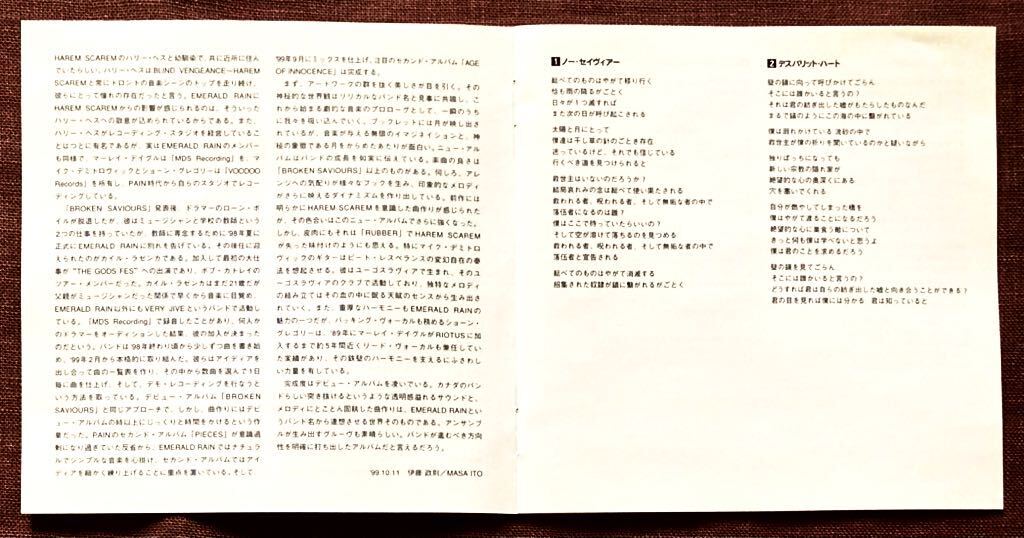 HAREM SCAREMのハリー・ヘスと幼馴染で、共に近所に住ん
でいたらしい。ハリー・ヘスはBLIND VENGEANCE〜HAREM
SCAREMと常にトロントの音楽シーンのトップを走り続け、
彼らにとって憧れの存在だったと言う。EMERALD RAINに
HAREM SCAREMからの影響が感じられるのは、そういった
ハリー・ヘスへの敬意が込められているからである。また、
ハリー・ヘスがレコーディング・スタジオを経営しているこ
とはつとに有名であるが、実はEMERALD RAINのメンバー
も同様で、マーレイ・デイグルは「MDS Recording」を、マ
イク・デミトロヴィックとショーン・グレゴリーは「VOODOO
Records」を所有し、PAIN時代から自らのスタジオでレコー
ディングしている。
「BROKEN SAVIOURS」発表後、ドラマーのローン・ボ
イルが脱退したが、彼はミュージシャンと学校の教師という
2つの仕事を持っていたが、教師に専念するために'98年夏に
正式にEMERALD RAINに別れを告げている。その後任に迎
えられたのがカイル・ラゼンカである。加入して最初の大仕
事が"THE GODS FES"への出演であり、ボブ・カトレイの
ツアー・メンバーだった。カイル・ラゼンカはまだ21歳だが
父親がミュージシャンだった関係で早くから音楽に目覚め、
EMERALD RAIN以外にもVERY JIVEというバンドで活動し
ている。「MDS Recording」で録音したことがあり、何人か
のドラマーをオーディションした結果、彼の加入が決まった
のだという。バンドは'98年終わり頃から少しずつ曲を書き始
め、'99年2月から本格的に取り組んだ。彼らはアイディアを
出し合って曲の一覧表を作り、その中から数曲を選んで1日
毎に曲を仕上げ、そして、デモ・レコーディングを行なうと
いう方法を取っている。デビュー・アルバム「BROKEN
SAVIOURS」と同じアプローチで、しかし、曲作りにはデビ
ュー・アルバムの時以上にじっくりと時間をかけるという作
業だった。PAINのセカンド・アルバム「PIECES」が意識過
剰になり過ぎていた反省から、EMERALD RAINではナチュラ
ルでシンプルな音楽を心掛け、セカンド・アルバムではアイ
ディアを細かく練り上げることに重点を置いている。そして
'99年9月にミックスを仕上げ、注目のセカンド・アルバム「AGE
OF INNOCENCE」は完成する。
まず、アートワークの群を抜く美しさが目を引く。その
神秘的な世界観はリリカルなバンド名と見事に共鳴し、こ
れから始まる劇的な音楽のプロローグとして、一瞬のうち
に我々を吸い込んでいく。ブックレットには月が映し出さ
れているが、音楽が与える無限のイマジネイションと、神
秘の象徴である月をからめたあたりが面白い。ニュー・アル
バムはバンドの成長を如実に伝えている。楽曲の良さは
「BROKEN SAVIOURS」以上のものがある。何しろ、アレ
ンジへの気配りが様々なフックを生み、印象的なメロディ
がさらに映えるダイナミズムを作り出している。前作には
明らかにHAREM SCAREMを意識した曲作りが感じられた
が、その色合いはこのニュー・アルバムでさらに強くなった。
しかし、皮肉にもそれは「RUBBER」でHAREM SCAREM
が失った味付けのようにも思える。特にマイク・デミトロ
ヴィックのギターはピート・レスペランスの変幻自在の奏
法を想起させる。彼はユーゴスラヴィアで生まれ、そのユ
ーゴスラヴィアのクラブで活動しており、独特なメロディ
の組み立てはその血の中に眠る天賦のセンスから生み出さ
れていく。また、重厚なハーモニーもEMERALD RAINの
魅力の一つだが、バッキング・ヴォーカルも務めるショーン・
グレゴリーは、'89年にマーレイ・デイグルがRIOTUSに加
入するまで約5年間近くリード・ヴォーカルも兼任してい
た実績があり、その鉄壁のハーモニーを支えるにふさわし
い力量を有している。
完成度はデビュー・アルバムを凌いでいる。カナダのバン
ドらしい突き抜けるというような透明感溢れるサウンドと、
メロディにとことん固執した曲作りは、EMERALD RAINとい
うバンド名から連想させる世界そのものである。アンサンブ
ルが生み出すグルーヴも素晴らしい。バンドが進むべき方向
性を明確に打ち出したアルバムだと言えるだろう。
'99.10.11 伊藤 政則／MASA ITO
1 ノー・セイヴィアー
総べてのものはやがて移り行く
恰も雨の降るがごとく
日々が1つ流れれば
また次の日が呼び起こされる
太陽と月にとって
僕達は干し草の針のごとき存在
迷っているけど、それでも信じている
行くべき道を見つけられると
救世主はいないのだろうか?
結局哀れみの念は総べて使い果たされる
救われる者、呪われる者、そして無垢なる者の中で
落伍者になるのは誰?
僕はここで待っていたらいいの?
そして空が溶けて落ちるのを見つめる
救われる者、呪われる者、そして無垢なる者の中で
落伍者と宣告される
総べてのものはやがて消滅する
招集された奴隷が鎖に繋がれるがごとく
2 デスパリット・ハート
壁の鏡に向って呼びかけてごらん
そこには誰かいると言うの?
それは君の紡ぎ出した嘘がもたらしたものなんだ
まるで錨のようにこの海の中に繋がれている
僕は溺れかけている 流砂の中で
救世主が僕の祈りを聞いているのかと疑いながら
独りぼっちになっても
新しい宗教の隠れ家が
絶望的な心の奥深くにある
穴を塞いでくれる
自分が燃やしてしまった橋を
僕はやがて渡ることになるだろう
絶望的な心に巣食う敵について
きっと何も僕は学べないと思うよ
僕は君のことを求めるだろう
壁の鏡を見てごらん
そこには誰かいると言うの?
どうすれば君は自らの紡ぎ出した嘘と向き合うことができる?
君の目を見れば僕には分かる 君は知っていると